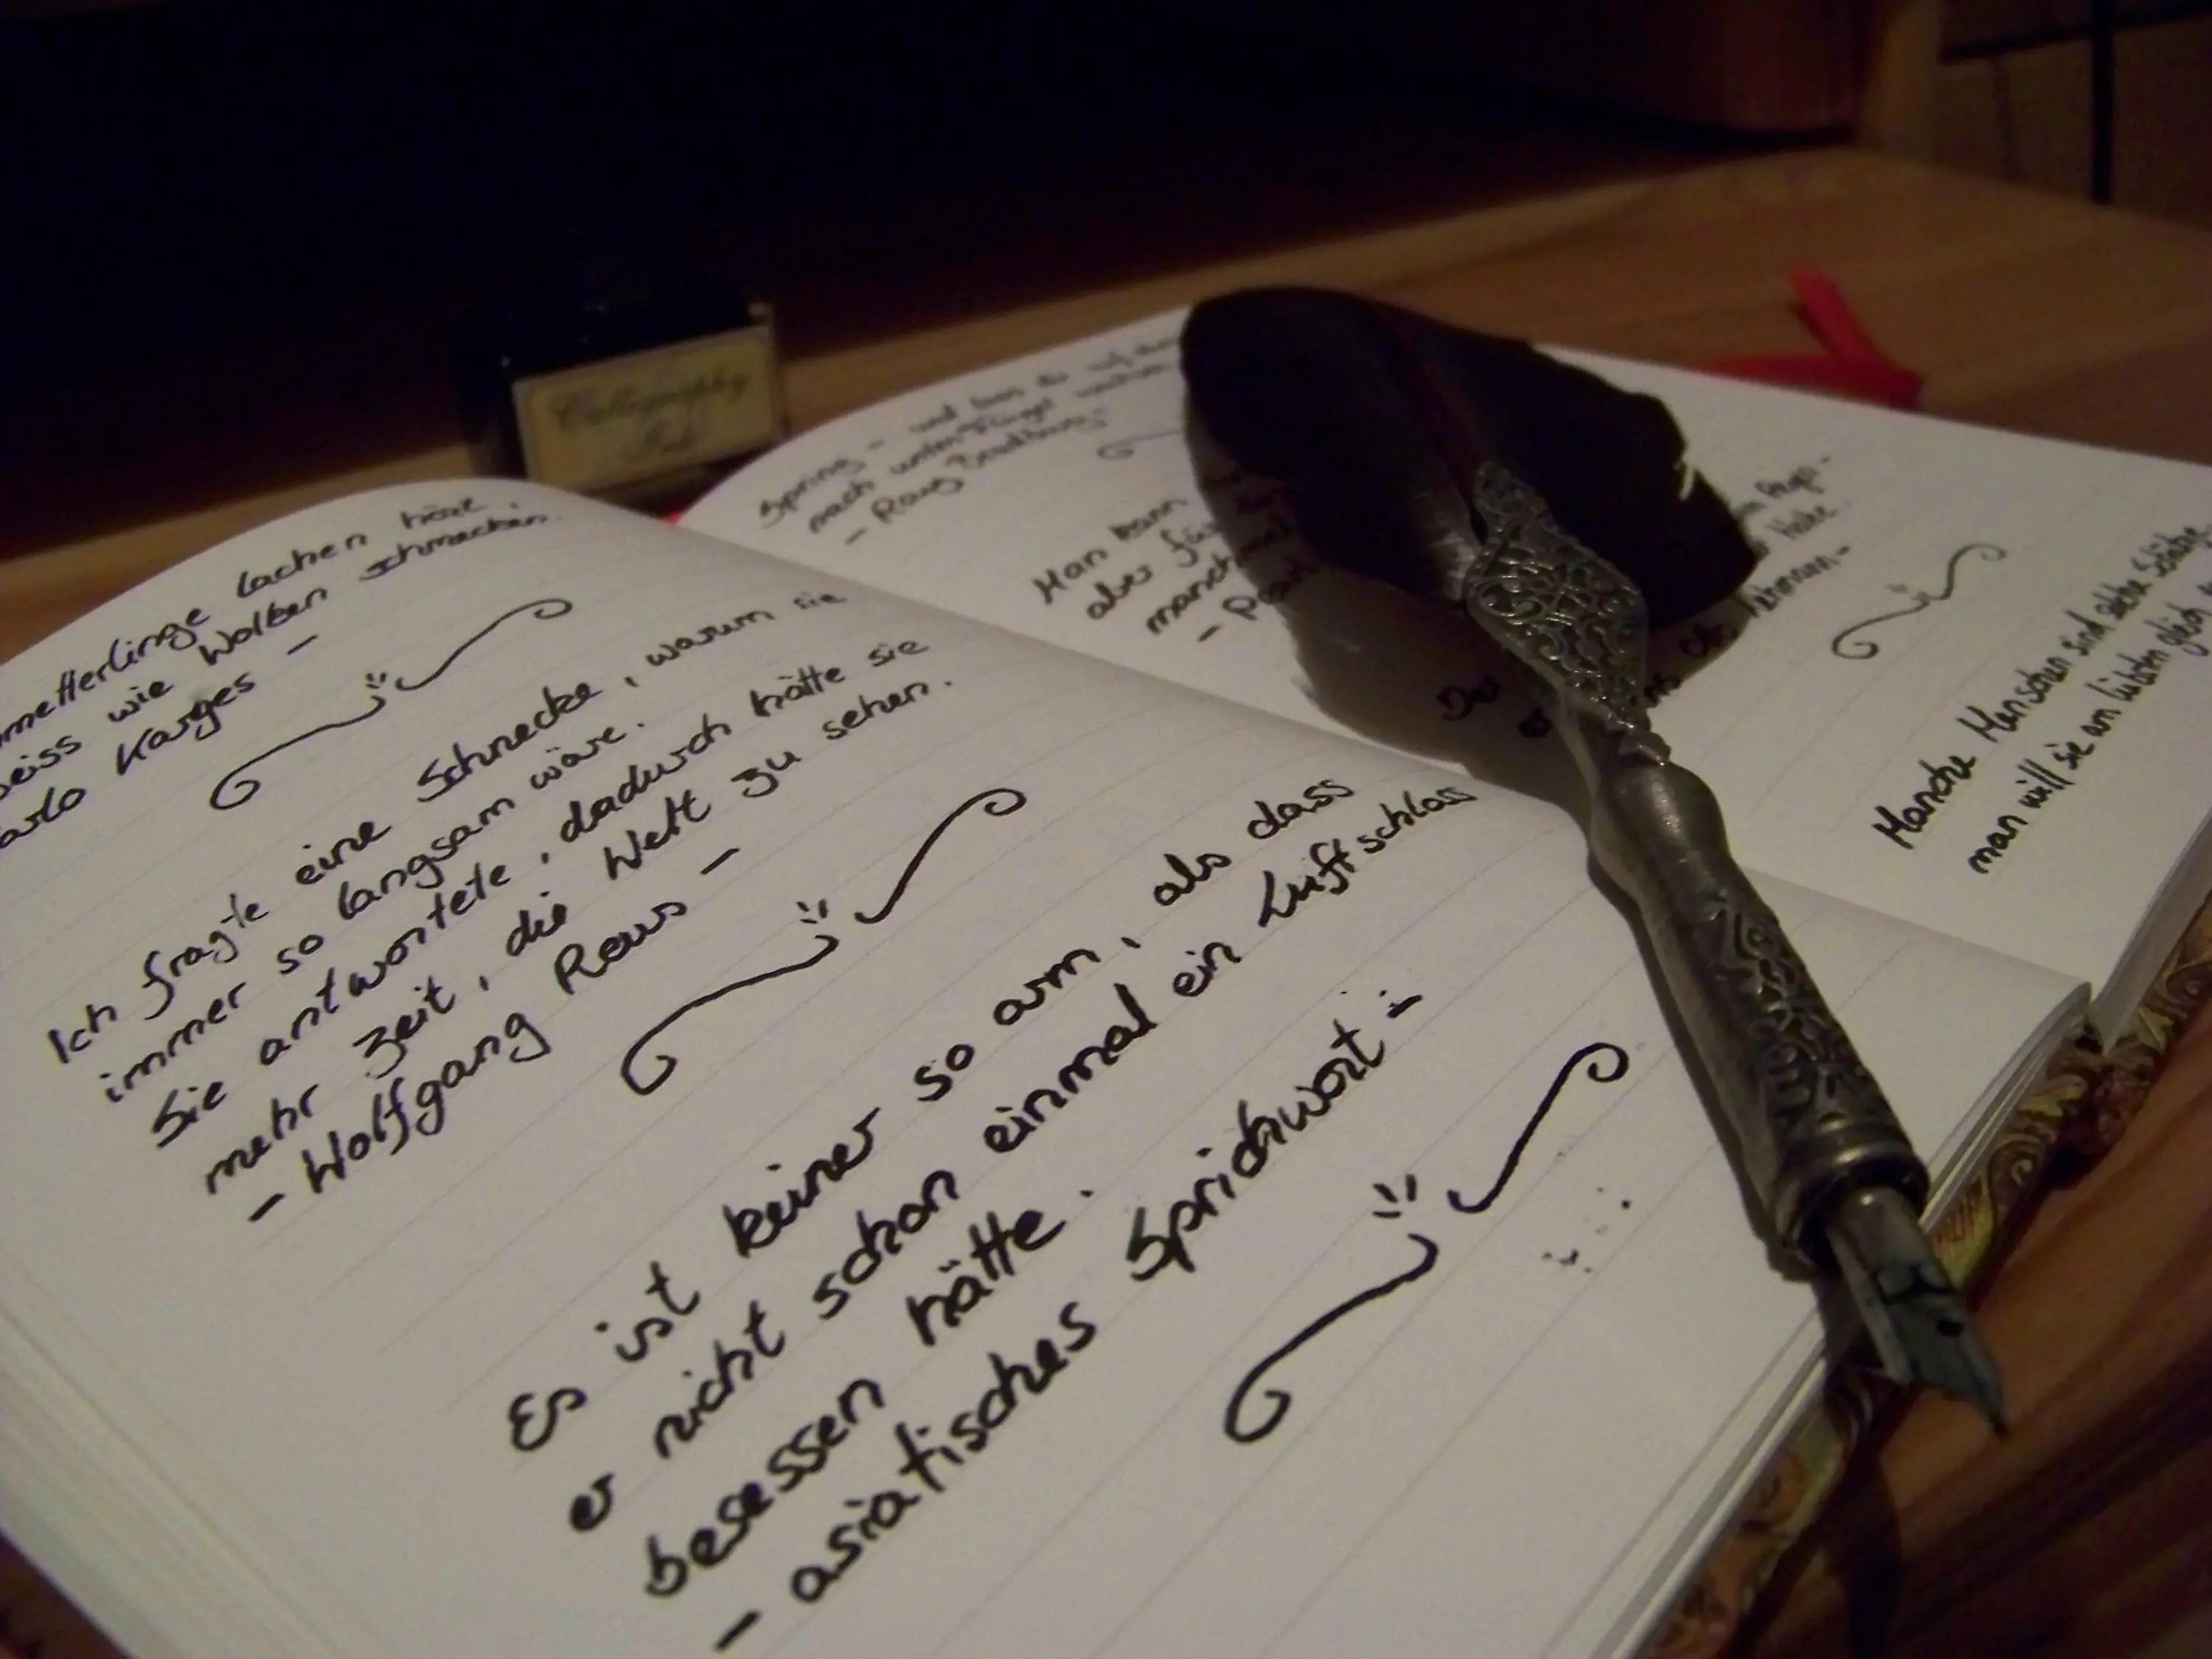 lachen höre,
weiss wie Wolken schmecken.
Karges -
Ich fragte eine Schnecke, warum sie
immer so langsam wäre.
Sie antwortete, dadurch hätte sie
mehr Zeit, die Welt zu sehen.
- Wolfgang Reus -
Es ist keiner so arm, als dass
er nicht schon einmal ein Luftschloss
besessen hätte.
- asiatisches Sprichwort -
Calligraphy
Ink
Spring - und lass
nach unten Flügel wachsen.
- Ray Bradbury -
Man kann
aber für
manchmal
Der
Manche Menschen sind solche Schätze,
man will sie am liebsten gleich